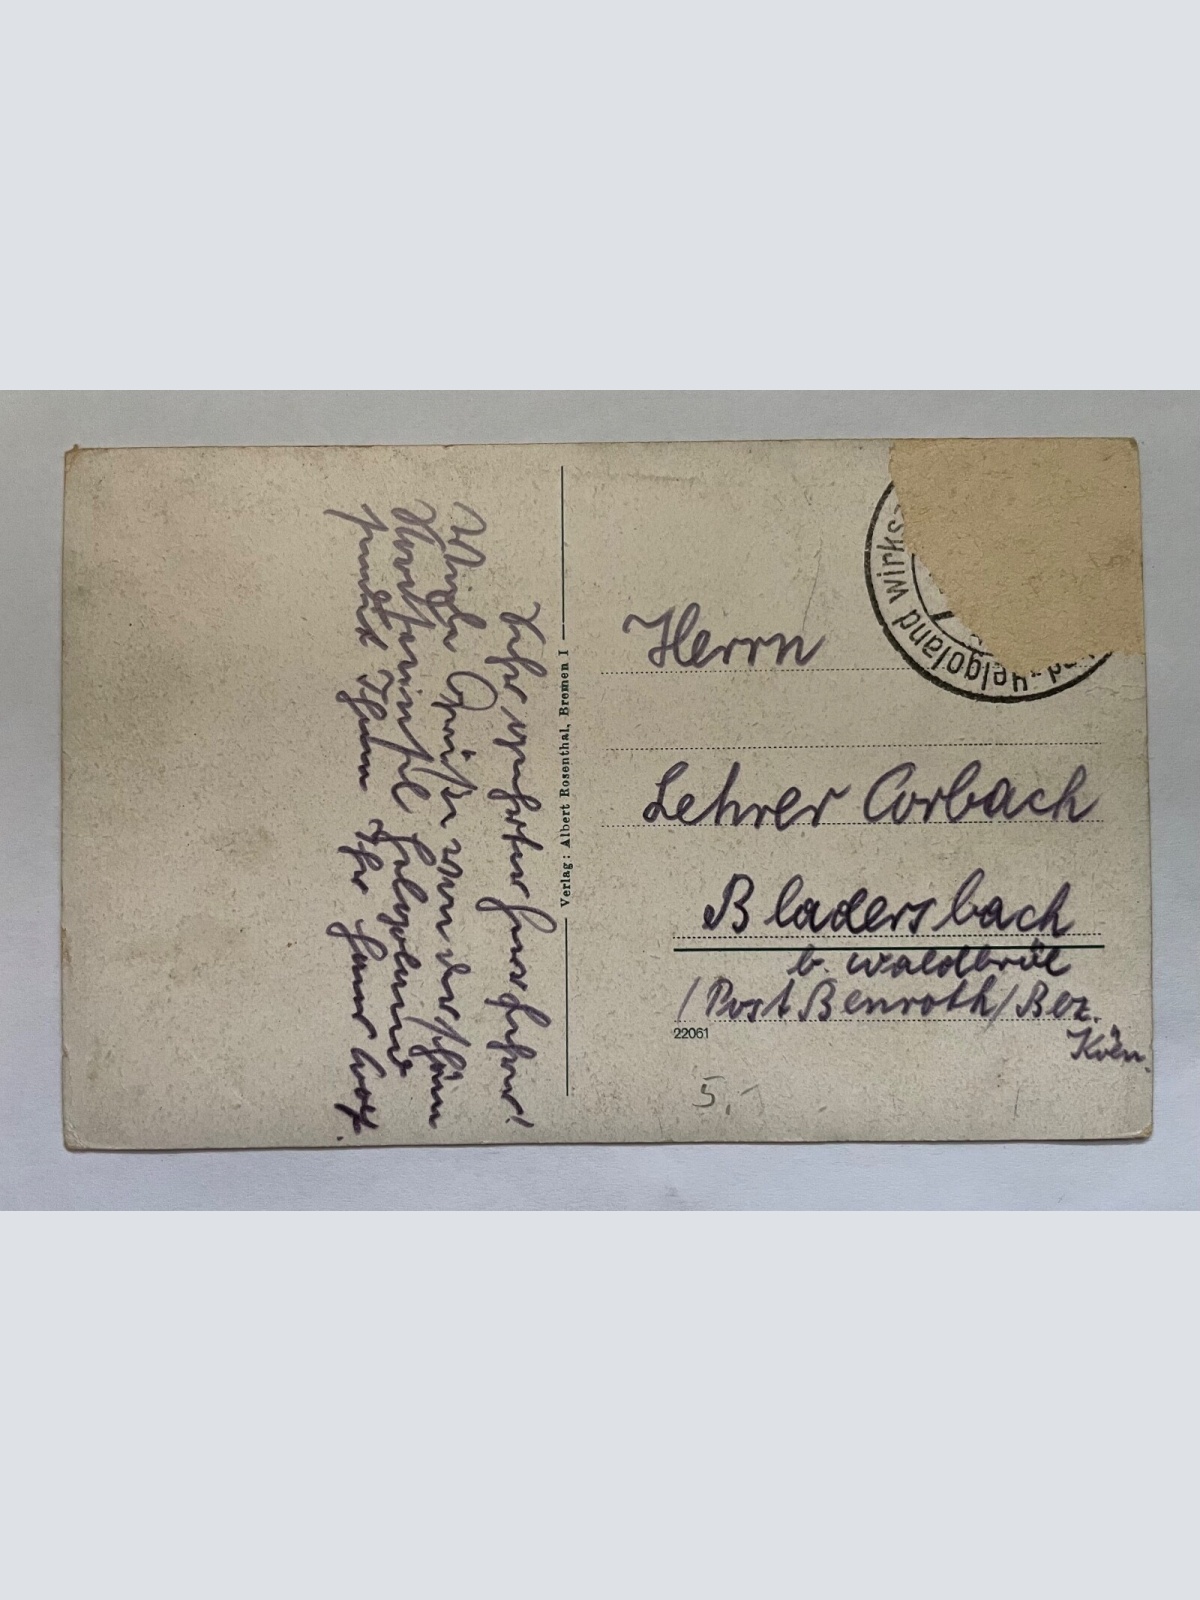 Sehr geehrter Herr Lehrer!
Viele Grüße von der schönen
Nordseeinsel Helgoland
sendet Ihnen Ihr
Verlag: Albert Rosenthal, Bremen I
Helgoland wirks
Herrn
Lehrer Corbach
Bladersbach
b. Waldbröl
/Post Benroth/ Bez.
Köln.
22061
5.-